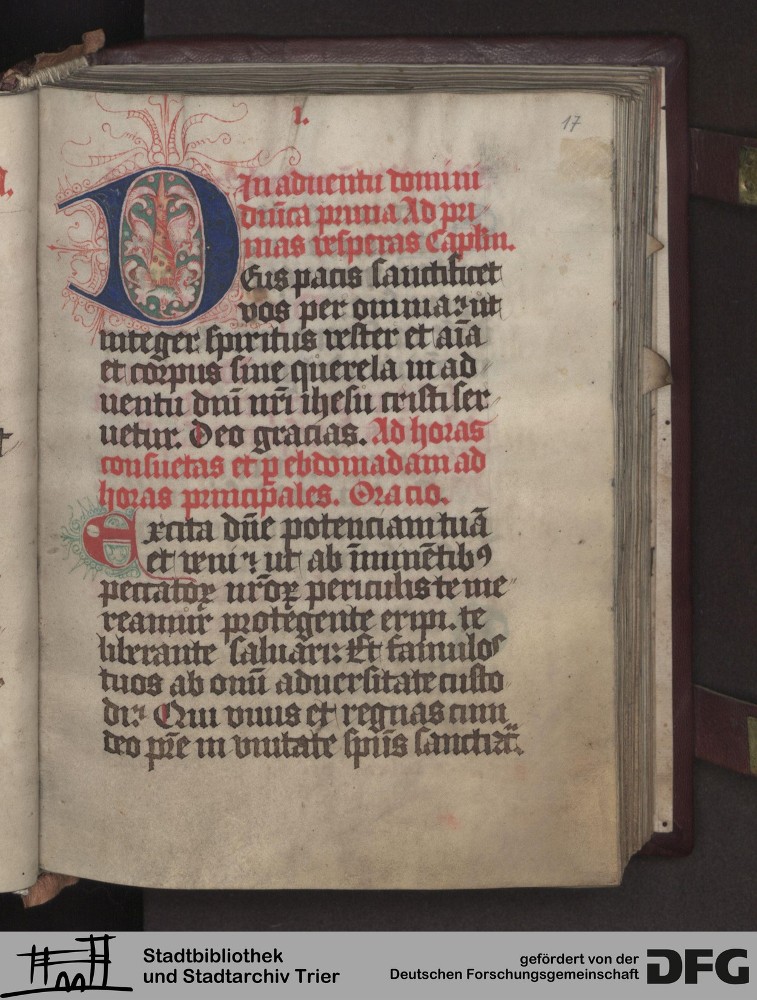 I.
17
In aduentu domini
dn̄ica prima Ad pri
mas vesperas Caplm̄.
Deus pacis sanctificet
vos per omnia: ut
integer spiritus vester et aīa
et corpus sine querela in ad
uentu dn̄i nr̄i ihesu cristi ser
uetur. Deo gracias. Ad horas
consuetas et ꝑ ebdomadam ad
horas principales. Oracio.
Excita dn̄e potenciam tuā
et veni: ut ab īminētibꝰ
peccatoꝝ nr̄oꝝ periculis te me
reamur protegente eripi. te
liberante saluari: Et famulos
tuos ab omī aduersitate custo
di: Qui viuis et regnas cum
deo pr̄e in vnitate spūs sancti
Stadtbibliothek
und Stadtarchiv Trier
gefördert von der
Deutschen Forschungsgemeinschaft
DFG